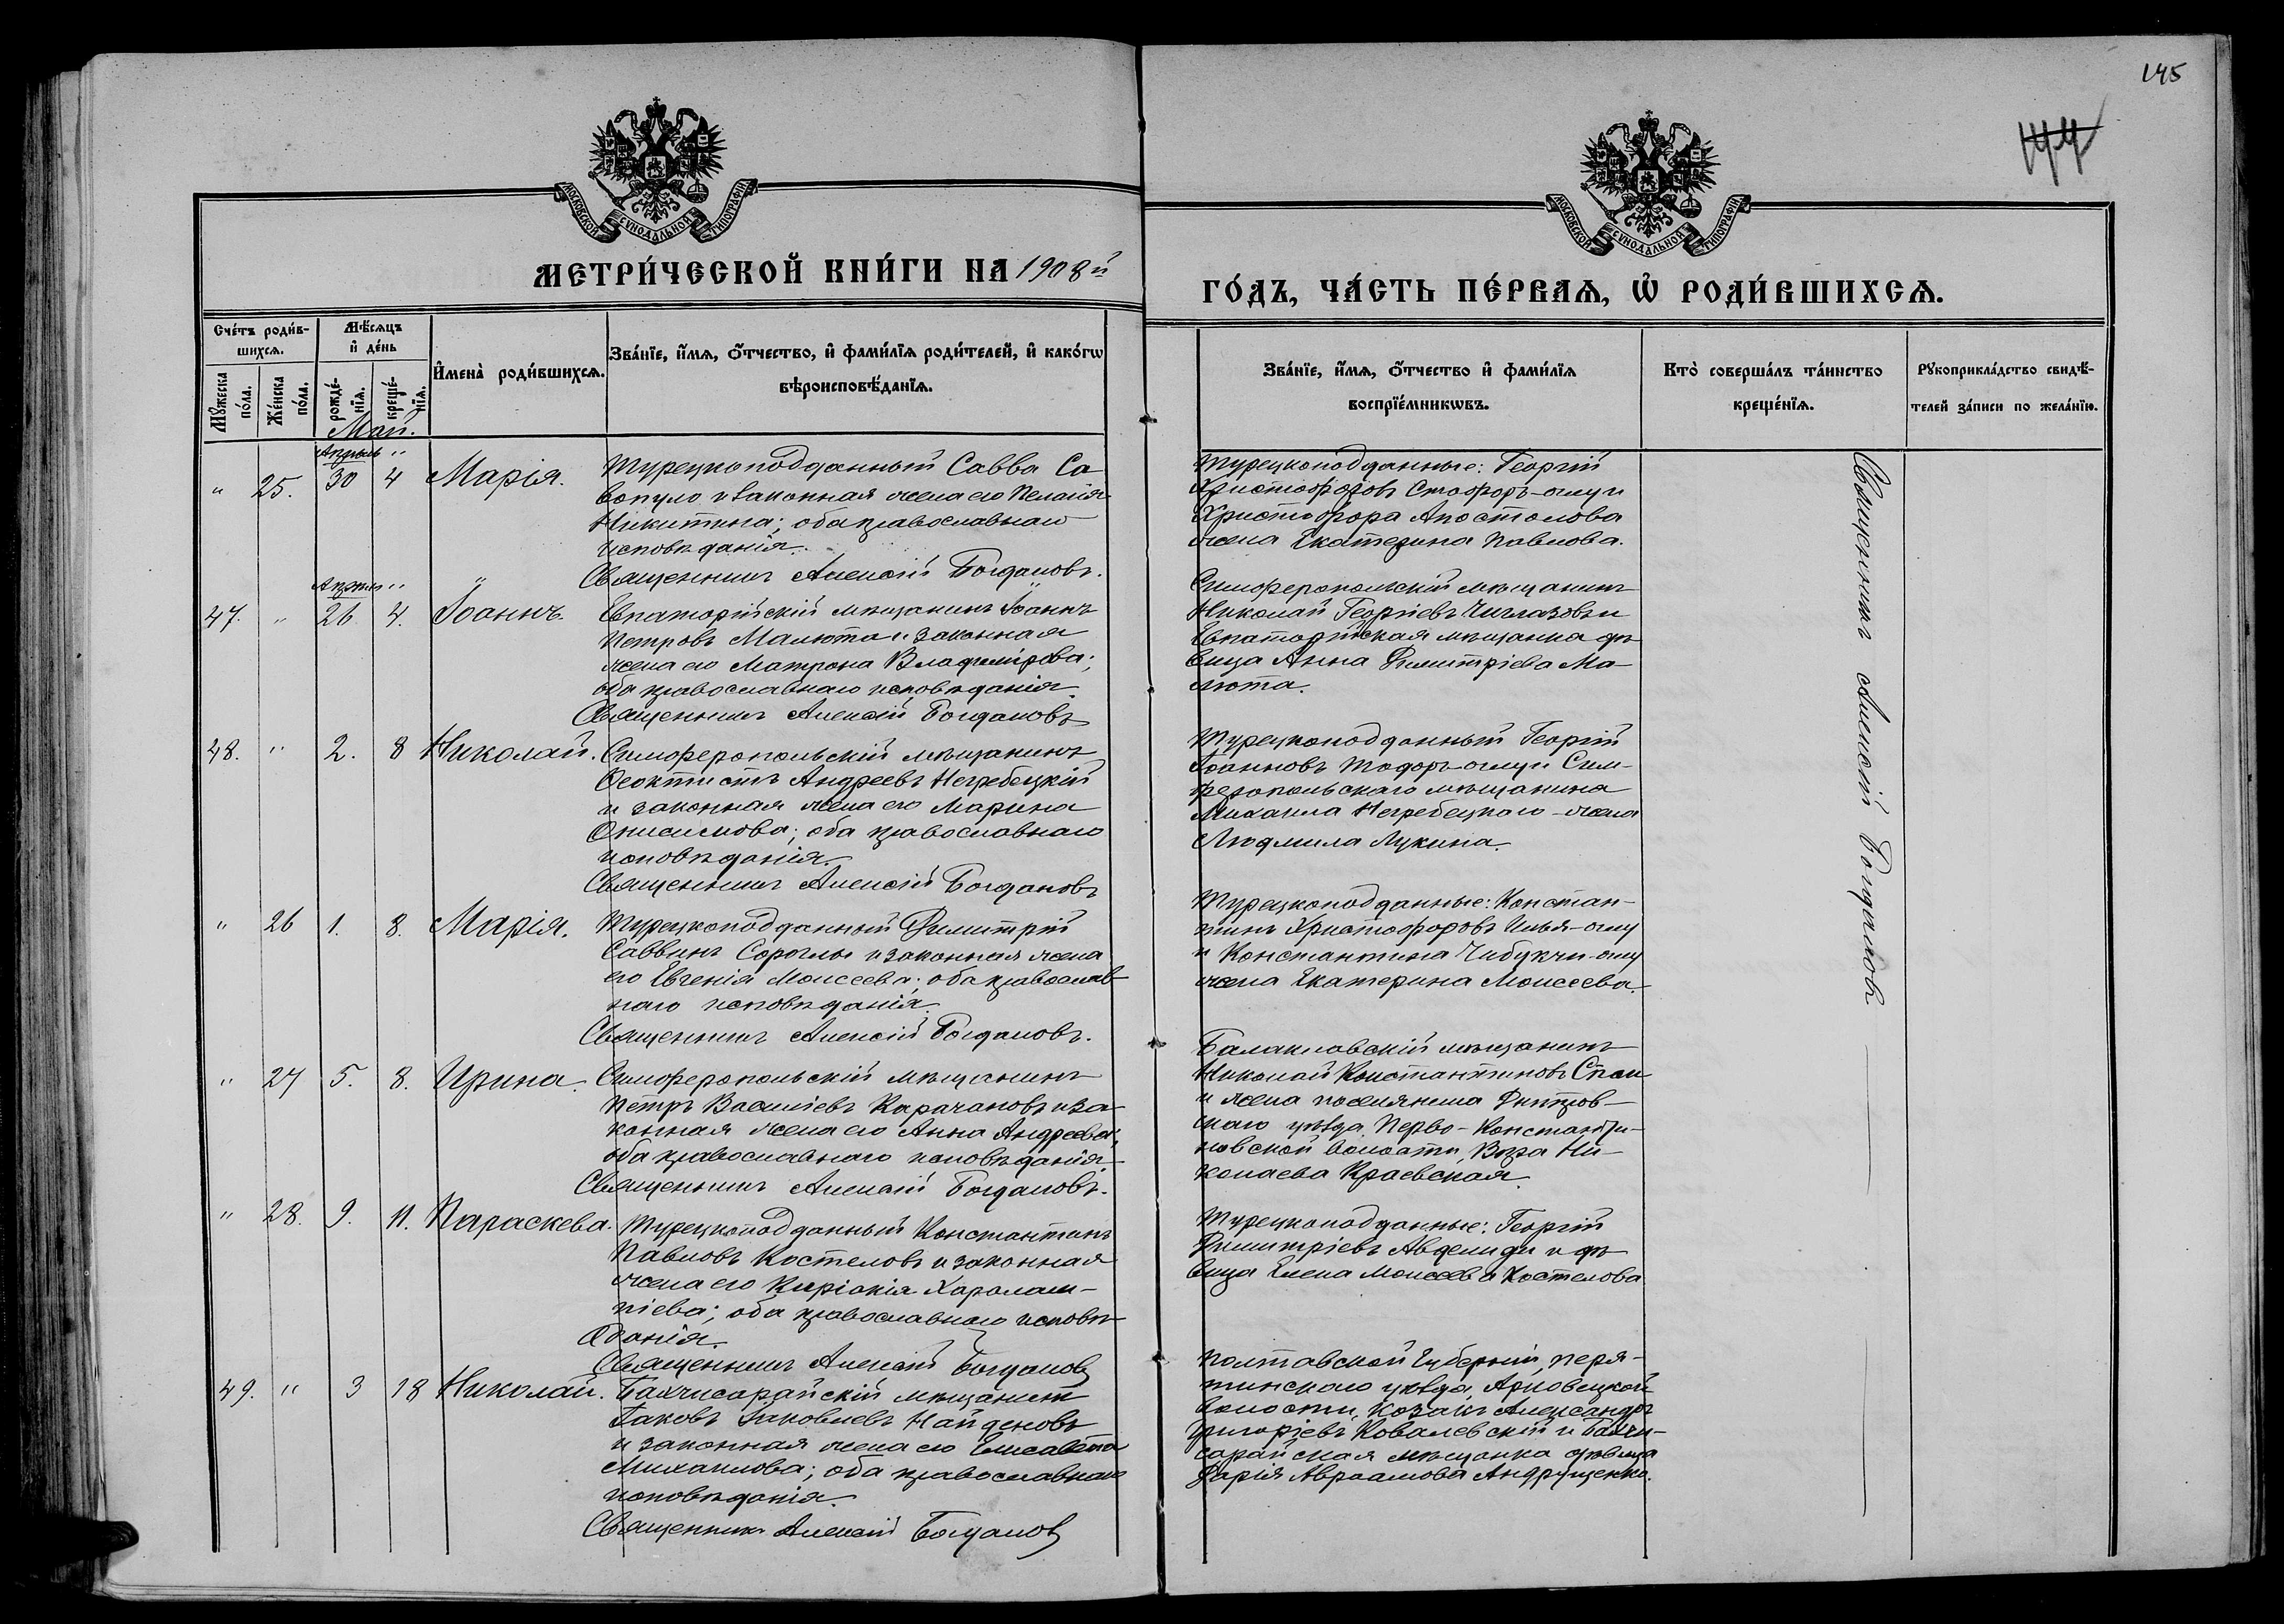 145
144
МОСКОВСКОЙ СѴНОДАЛЬНОЙ ТИПОГРАФІИ
МОСКОВСКОЙ СѴНОДАЛЬНОЙ ТИПОГРАФІИ
МЕТРИ́ЧЕСКОЙ КНИ́ГИ НА 1908й
ГО́ДЪ, ЧА́СТЬ ПЕ́РВАѦ, Ѡ҆ РОДИ́ВШИХСѦ.
Сче́тъ роди́в-
шихсѧ.
Мѣ́сѧцъ
и҆ де́нь
Мꙋ́жеска
по́ла.
Же́нска
по́ла.
рожде́-
нїѧ.
креще́-
нїѧ.
И҆мена̀ роди́вшихсѧ.
Зва́нїе, и҆́мѧ, ѻ҆́тчество, и҆ фами́лїѧ роди́телей, и҆ како́гѡ
вѣроисповѣ́данїѧ.
Зва́нїе, и҆́мѧ, ѻ҆́тчество и҆ фами́лїѧ
воспрїе́мникѡвъ.
Кто̀ соверша́лъ та́инство
креще́нїѧ.
Рꙋкоприкла́дство свидѣ́-
телей за́писи по жела́нїю.
Май.
Апрѣль "
" 25. 30 4 Марія.
Турецкоподданный Савва Са
вопуло и законная жена его Пелагія
Никитина; оба православнаго
исповѣданія.
Священникъ Алексій Богдановъ.
Турецкоподданные: Георгій
Христофоровъ Стофоръ-оглу и
Христофора Апостолова
жена Екатерина Павлова.
Апрѣль " "
47. " 26 4. Іоаннъ.
Евпаторійскій мѣщанинъ Іоаннъ
Петровъ Малюта и законная
жена его Матрона Владимірова;
оба православнаго исповѣданія.
Священникъ Алексій Богдановъ
Симферопольскій мѣщанинъ
Николай Георгіевъ Чиглазовъ и
Евпаторійская мѣщанка дѣ-
вица Анна Димитріева Ма-
люта.
48. " 2. 8 Николай.
Симферопольскій мѣщанинъ
Ѳеоктистъ Андреевъ Негребецкій
и законная жена его Марина
Онисимова; оба православнаго
исповѣданія.
Священникъ Алексій Богдановъ
Турецкоподданный Георгій
Іоанновъ Тодоръ-оглу и Сим-
феропольскаго мѣщанина
Михаила Негребецкаго-жена
Людмила Лукина.
" 26 1. 8. Марія.
Турецкоподданный Димитрій
Саввинъ Сороглы и законная жена
его Евгенія Моисеева; оба православ-
наго исповѣданія.
Священникъ Алексій Богдановъ.
Турецкоподданные: Констан-
тинъ Христофоровъ Илья-оглу
и Константина Чибукчи-оглу
жена Екатерина Моисеева.
" 27 5. 8. Ирина.
Симферопольскій мѣщанинъ
Петръ Василіевъ Карачановъ и за-
конная жена его Анна Андреева;
оба православнаго исповѣданія.
Священникъ Алексій Богдановъ.
Балаклавскій мѣщанинъ
Николай Константиновъ Спаи
и жена поселянина Днѣпров-
скаго уѣзда, Перво-Константи-
новской волости, Вѣра Ни-
колаева Краевская.
" 28. 9. 11. Параскева.
Турецкоподданный Константинъ
Павловъ Костеловъ и законная
жена его Киріакія Харалам-
піева; оба православнаго исповѣ-
данія.
Священникъ Алексій Богдановъ
Турецкоподданные: Георгій
Димитріевъ Авделиди и дѣ-
вица Елена Моисеева Костелова
49. " 3 18 Николай.
Бахчисарайскій мѣщанинъ
Іаковъ Іаковлевъ Найденовъ
и законная жена его Елисавета
Михаилова; оба православнаго
исповѣданія.
Священникъ Алексій Богдановъ
Полтавской губерніи, Перя-
тинскаго уѣзда, Яцковецкой
волости, козакъ Александръ
Григоріевъ Ковалевскій и Бахчи-
сарайская мѣщанка дѣвица
Дарія Авраамова Андрущенко.
Священникъ Алексій Богдановъ